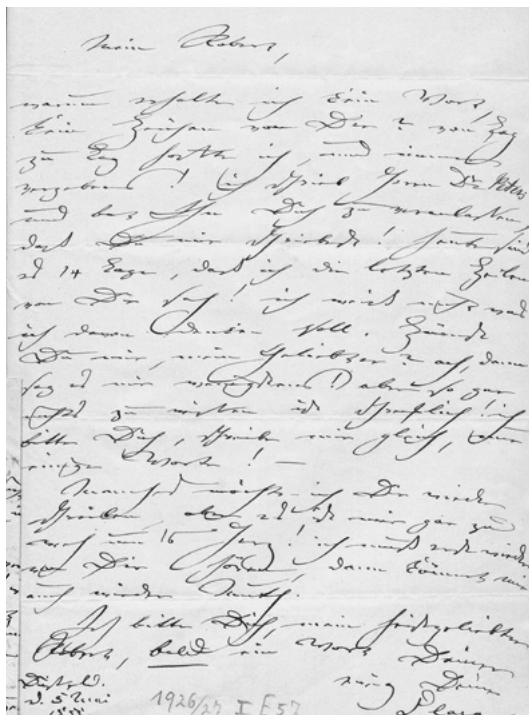 Mein Robert,
warum erhalte ich kein Wort,
kein Zeichen von Dir? von Tag
zu Tag hoffte ich, und immer
vergebens! ich schrieb Herrn Dr. Peters
und bat Ihn Dich zu veranlassen,
daß Du mir schriebest! heute sind
es 14 Tage, daß ich die letzten Zeilen
von Dir sah! ich weiß nicht was
ich davon denken soll. Zürnst
Du mir, mein Geliebter? ach, dann
sag es mir wenigstens! aber so gar
nichts zu wissen ist schrecklich! ich
bitte Dich, schreibe mir gleich, nur
einige Worte! —
Manches möchte ich Dir wieder
schreiben, aber es ist mir gar zu
weh um's Herz! ich muß erst wieder
von Dir hören, dann kömmt mir
auch wieder Muth.
Ich bitte Dich, mein heißgeliebter
Robert, bald ein Wort Deiner
ewig Deine
Clara
Düsseld.
d. 5 Mai
1926/27 I E 57